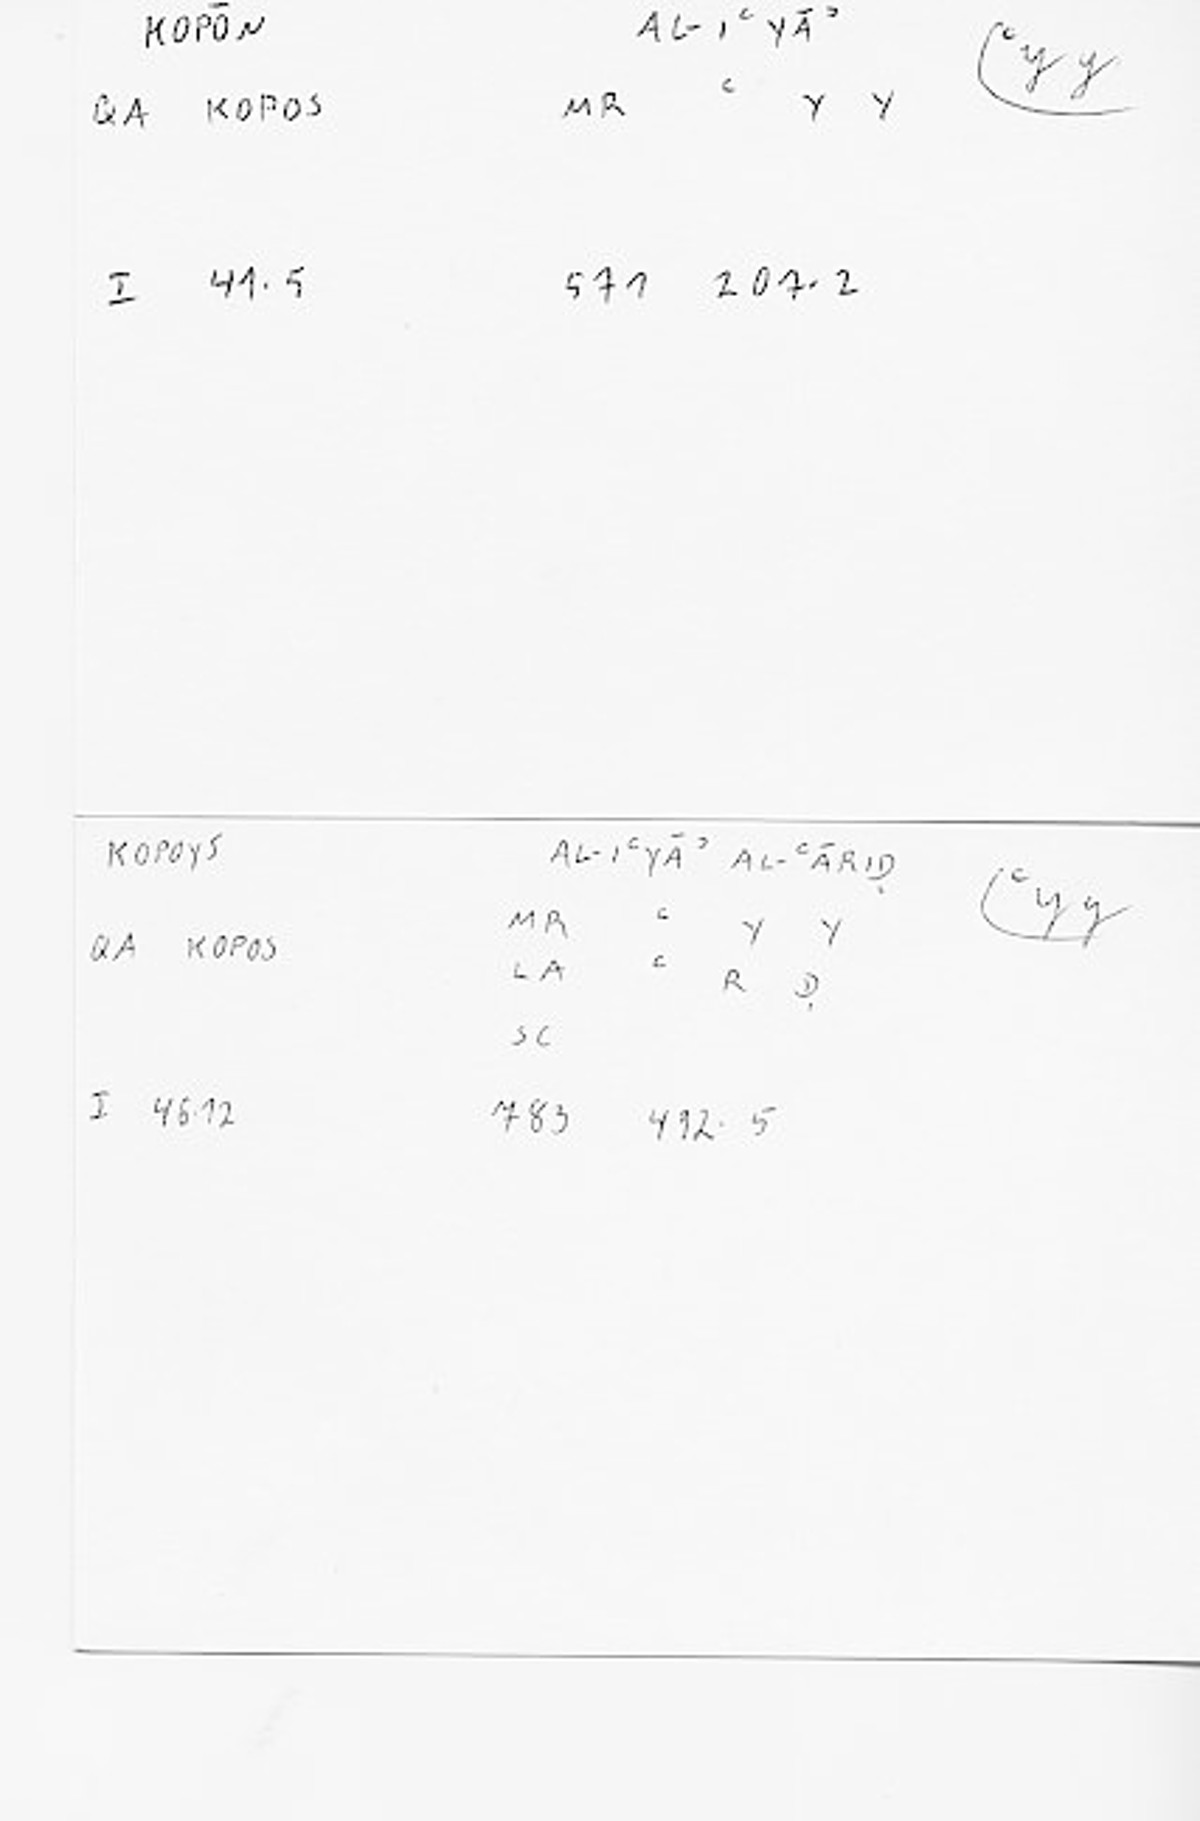 KOPŌN AL-IʿYĀʾ ʿyy
QA KOPOS MR ʿ Y Y
I 41.5 571 207.2
KOPOYS AL-IʿYĀʾ AL-ʿĀRIḌ ʿyy
MR ʿ Y Y
QA KOPOS
LA ʿ R Ḍ
SC
I 46.12 783 492. 5